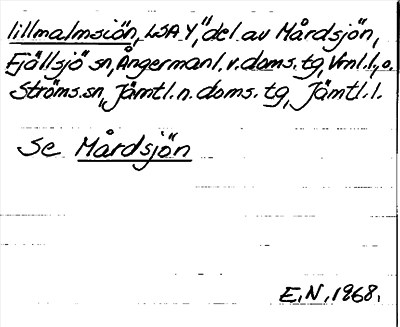 lillmalmsjön, LSA Y, "del av Mårdsjön,
Fjällsjö sn, Ångermanl. v. doms. tg, Vrnl. l., o.
Ströms. sn, Jämtl. n. doms. tg, Jämtl. l.
Se Mårdsjön
E. N. 1968.